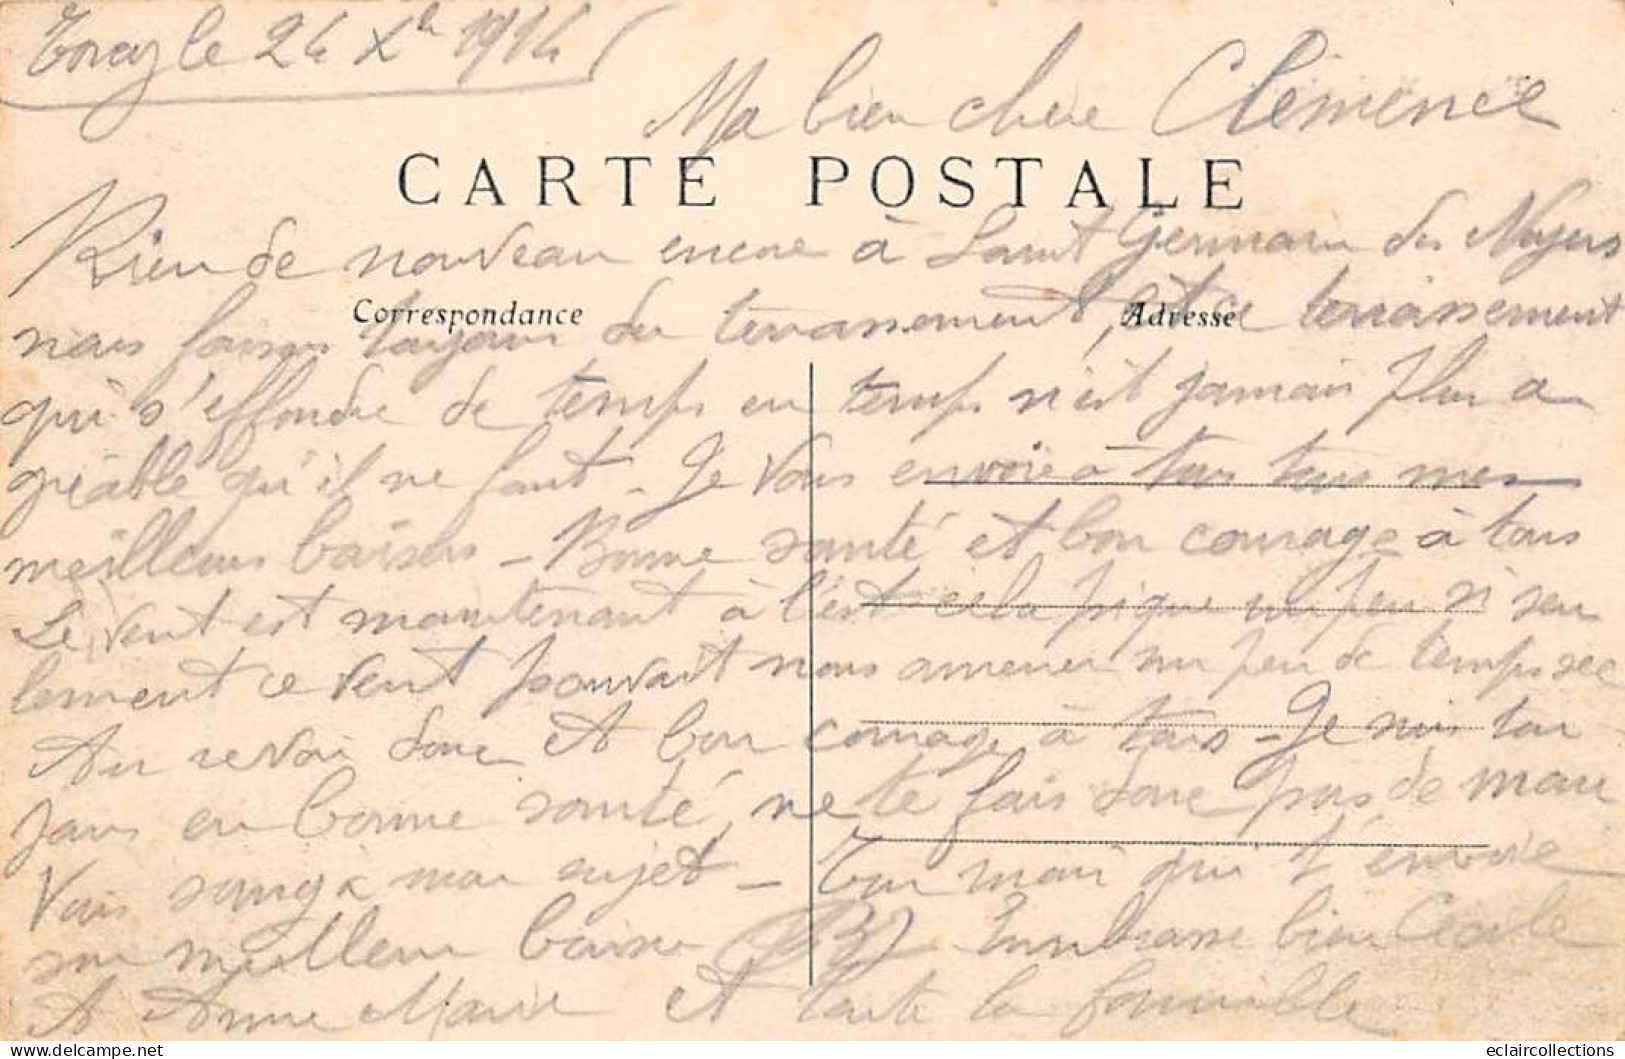 le 24 Xbre 1914
Ma bien chere Clémence
CARTE POSTALE
Rien de nouveau encore à Saint Germain des Noyers
Correspondance
Adresse
nous faisons toujours du terrassement, et ce terrassement
qui s'effondre de temps en temps n'est jamais plus a
gréable qu'il ne faut - Je vous envoie à tous tous mes
meilleurs baisers - Bonne santé et bon courage à tous
Le vent est maintenant à l'est cela pique un peu si seu
lement ce vent pouvait nous amener un peu de temps sec
Au revoir donc et bon courage à tous - Je suis tou
jours en bonne santé, ne te fais donc pas de mau
vais sang à mon sujet - Ton mari qui t'envoie
son meilleur baiser Embrasse bien Cécile
et Anne Marie et toute la famille
eclaircollections